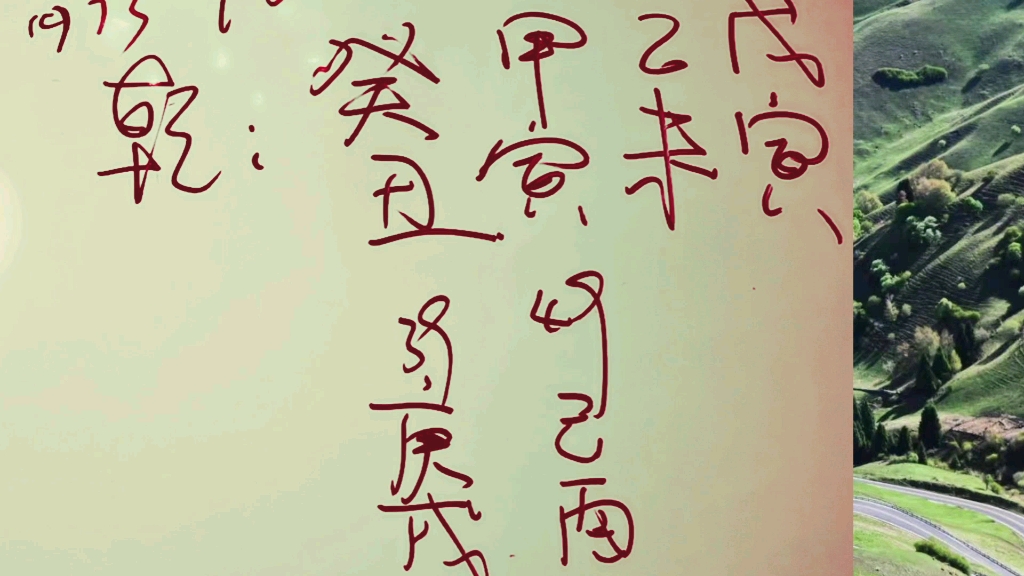 1973
乾: 癸 甲 乙 戊
丑 寅 未 寅
39 49
庚 己
戌 酉